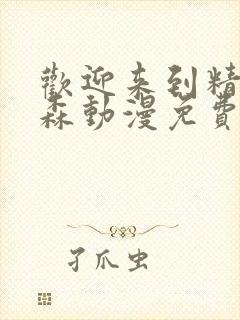 歡迎来到精
森動漫免費
孑爪虫